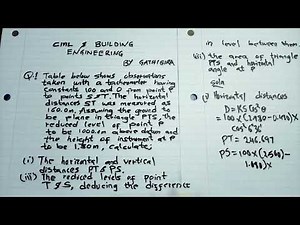 CIVIL & BUILDING
ENGINEERING
BY GATHIGIRA
Q1 Table below shows observations
taken with a tacheometer having
constants 100 and 0 from point P
to points S & T. The horizontal
distances ST was measured as
160.0m. Assuming the ground to
be plane in triangle PTS. The
reduced level of point P
to be 1000.0m above datum and
the height of instrument at P
to be 1.50m, calculate;
(i) The horizontal and vertical
distances PT & PS.
(ii) The reduced levels of point
T & S, deducing the difference
in level between them
(iii) the area of triangle
PTS and horizontal
angle at P
Soln
(i) Horizontal distances
D = KS cos²θ
PT = 246.697